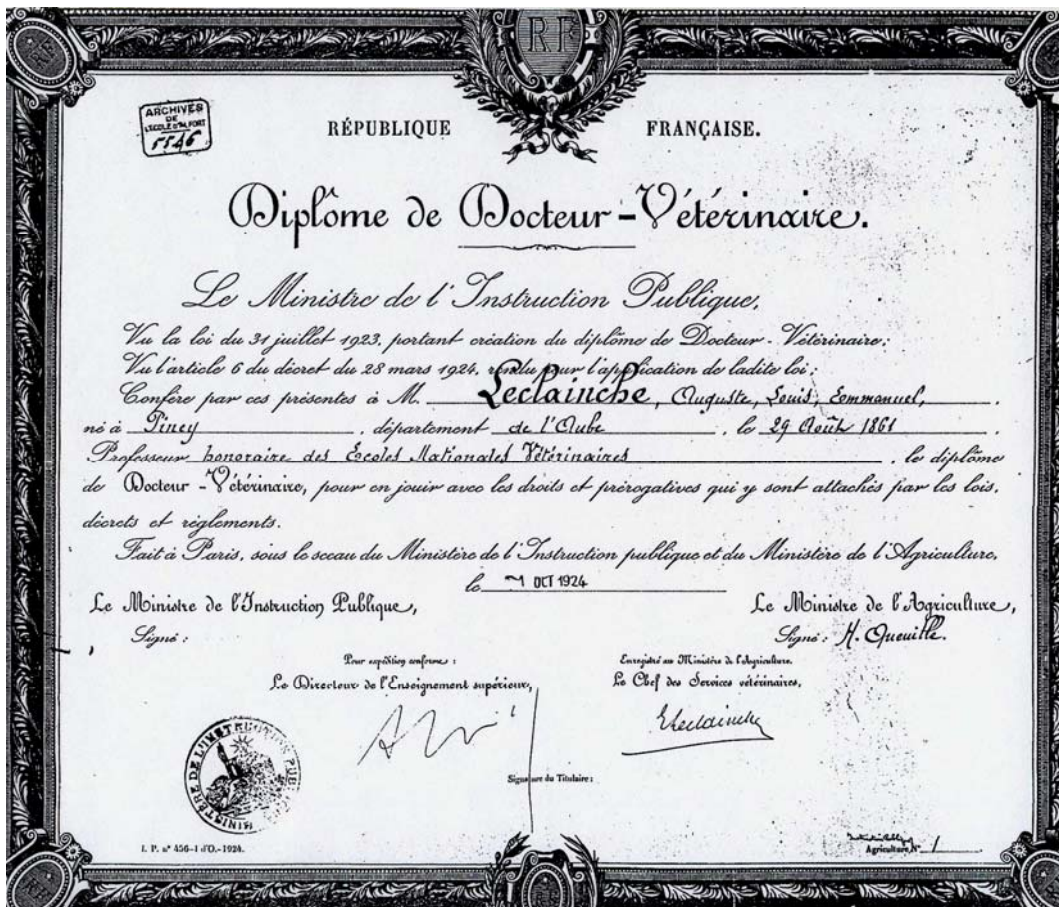 RF
ARCHIVES
DE
L'ECOLE D'ALFORT
5546
RÉPUBLIQUE FRANÇAISE.
Diplôme de Docteur-Vétérinaire.
Le Ministre de l'Instruction Publique,
Vu la loi du 31 juillet 1923, portant création du diplôme de Docteur-Vétérinaire;
Vu l'article 6 du décret du 28 mars 1924, rendu pour l'application de ladite loi;
Confère par ces présentes à M. Leclainche, Auguste, Louis, Emmanuel,
né à Piney, département de l'Aube, le 29 Août 1861
Professeur honoraire des Ecoles Nationales Vétérinaires, le diplôme
de Docteur-Vétérinaire, pour en jouir avec les droits et prérogatives qui y sont attachés par les lois,
décrets et règlements.
Fait à Paris, sous le sceau du Ministère de l'Instruction publique et du Ministère de l'Agriculture,
le OCT 1924
Le Ministre de l'Instruction Publique, Le Ministre de l'Agriculture,
Signé: Signé: H. Queuille.
Pour expédition conforme: Enregistré au Ministère de l'Agriculture.
Le Directeur de l'Enseignement supérieur, Le Chef des Services vétérinaires,
E Leclainche
Signature du Titulaire:
MINISTÈRE DE L'INSTRUCTION PUB
I. P. n° 456-1 d'O.-1924.
Agriculture, N° 1